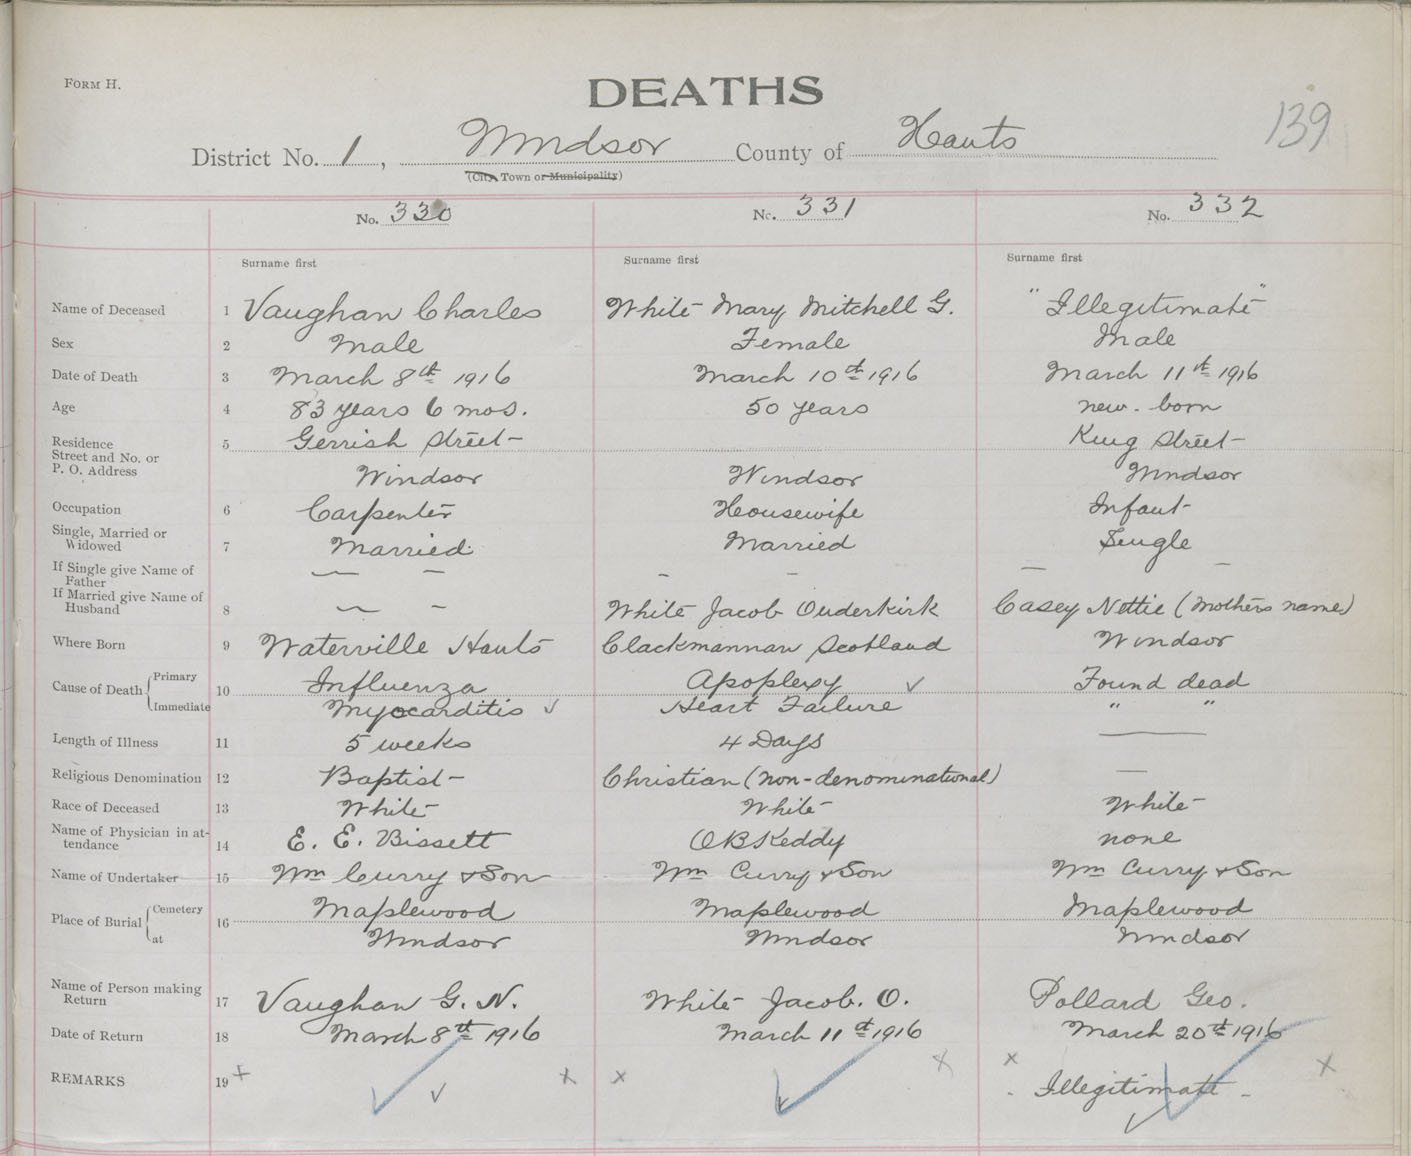 FORM H.
DEATHS
139
District No. 1, Windsor County of Hants
(City, Town or Municipality)
No. 330 No. 331 No. 332
Surname first Surname first Surname first
Name of Deceased 1 Vaughan Charles White Mary Mitchell G. "Illegitimate"
Sex 2 Male Female Male
Date of Death 3 March 8th 1916 March 10th 1916 March 11th 1916
Age 4 83 years 6 mos. 50 years new-born
Residence 5 Gerrish Street King Street
Street and No. or
P. O. Address Windsor Windsor Windsor
Occupation 6 Carpenter Housewife Infant
Single, Married or
Widowed 7 Married Married Single
If Single give Name of
Father — — - - — -
If Married give Name of
Husband 8 — - White Jacob Ouderkirk Casey Nettie (Mothers name)
Where Born 9 Waterville Hants Clackmannan Scotland Windsor
Cause of Death 10 Primary Influenza Apoplexy ✓ Found dead
Immediate Myocarditis ✓ Heart Failure " "
Length of Illness 11 5 weeks 4 Days —
Religious Denomination 12 Baptist Christian (non-denominational) —
Race of Deceased 13 White White White
Name of Physician in at-
tendance 14 E. E. Bissett O B Keddy none
Name of Undertaker 15 Wm Curry & Son Wm Curry & Son Wm Curry & Son
Place of Burial 16 Cemetery Maplewood Maplewood Maplewood
at Windsor Windsor Windsor
Name of Person making
Return 17 Vaughan G. N. White Jacob. O. Pollard Geo.
Date of Return 18 March 8th 1916 March 11th 1916 March 20th 1916
REMARKS 19 + ✓ x x ✓ x x Illegitimate - ✓ x